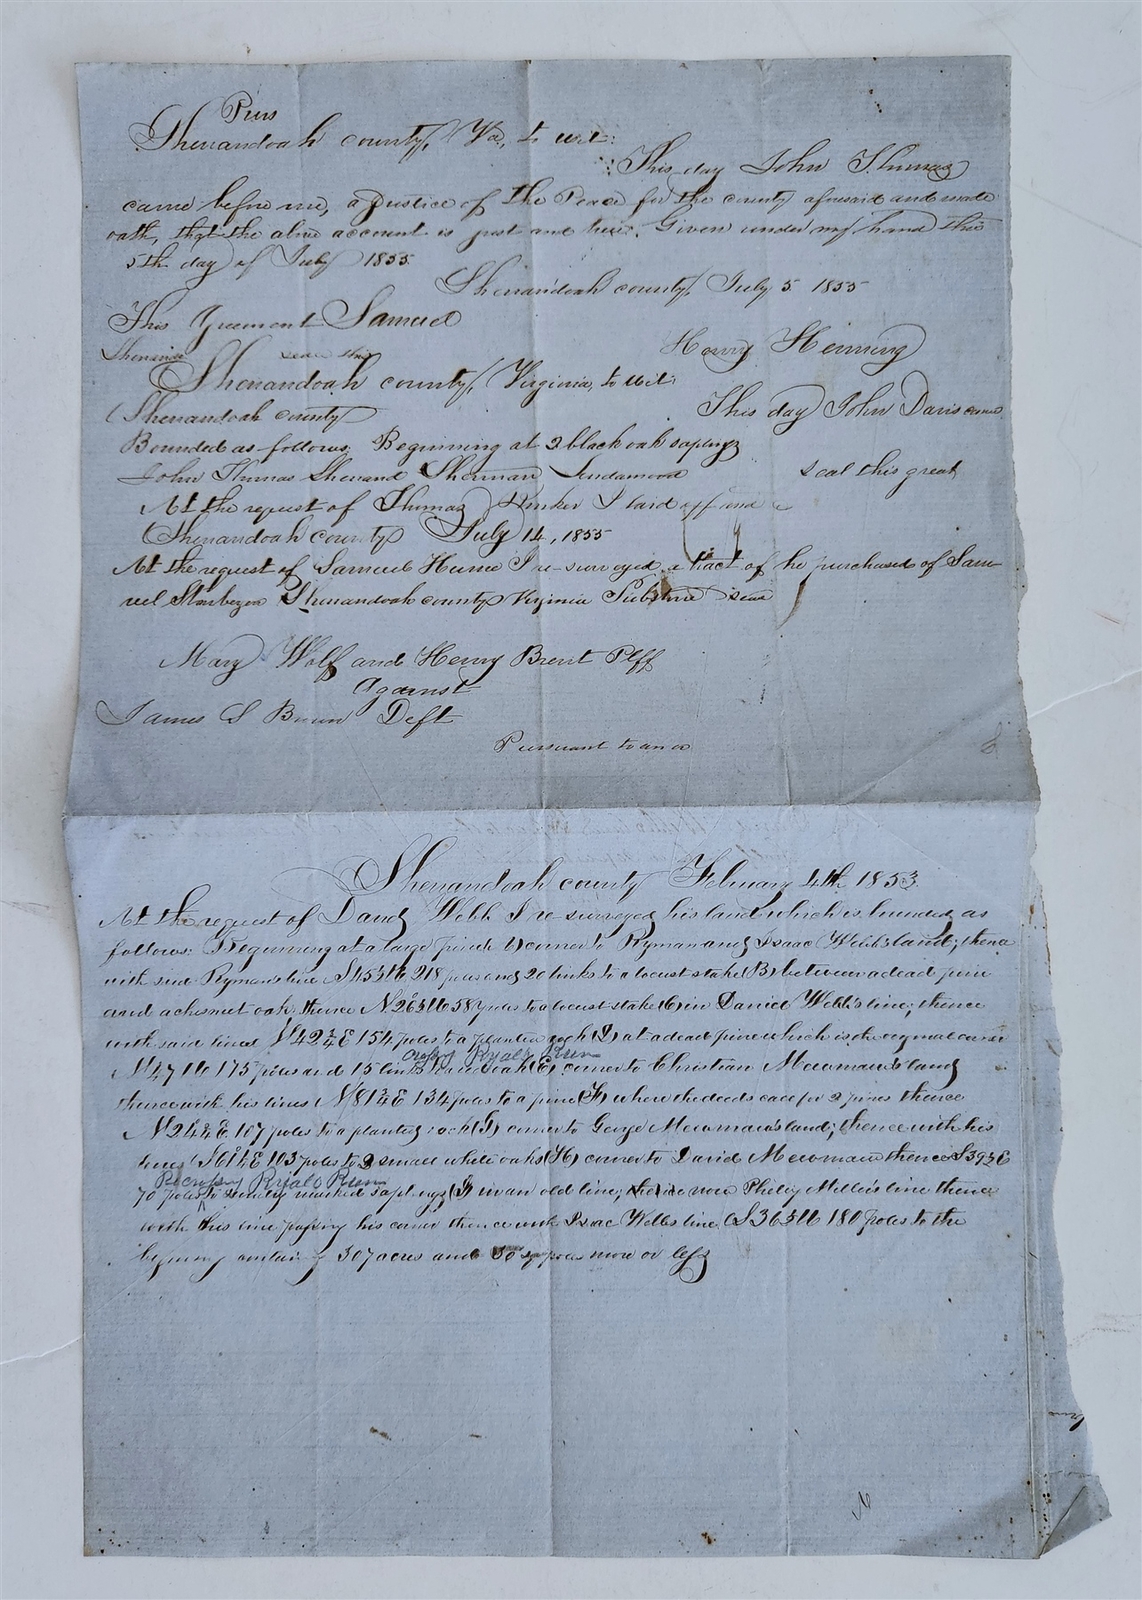 Pius
Shenandoah county, Va, to wit:
This day John Thomas
came before me, a Justice of the Peace for the county aforesaid and made
oath, that the above account is just and true. Given under my hand this
5th day of July 1855
Shenandoah county, July 5 1855
This Greement Samuel
Shenando
Henry Henning
Shenandoah county, Virginia, to wit:
Shenandoah county
This day John Davis came
Bounded as follows Beginning at 2 black oak saplings
John Thomas Shenand Sherman
seal this great
At the request of Thomas I laid off and
Shenandoah county July 14, 1855
At the request of Samuel Hume I re-surveyed a tract of he purchased of Sam-
uel Shenandoah county Virginia
Mary Wolf and Henry Brent Plff
Against
James S Brown Deft
Pursuant to an o
Shenandoah county February 4th 1853
At the request of David Webb I re surveyed his land which is bounded as
follows: Beginning at a large pine corner to Ryman and Isaac Webb's land; thence
with said Ryman's line S 45 W 218 poles and 20 links to a locust stake (B) between a dead pine
and a chesnut oak thence N 26 W 58 poles to a locust stake (C) in Daniel Webb's line; thence
with said lines N 42 1/4 E 154 poles to a planted rock (D) at a dead pine which is the orginal corner
crossing Ryals Run
N 47 W 175 poles and 15 links oak (E) corner to Christian Mowmaw's land
thence with his lines N 81 3/4 E 134 poles to a pine (F) where the deeds call for 2 pines thence
N 24 E 107 poles to a planted rock (G) corner to George Mowmaw's land; thence with his
lines S 61 1/4 E 103 poles to 2 small white oaks (H) corner to David Mowmaw thence S 39 1/2 E
Recrossing Ryals Run
70 poles to marked saplings (I) in an old line, now Philip Miller's line thence
with this line passing his corner thence with Isaac Webbs line S 36 W 180 poles to the
begining containing 307 acres and 30 sq poles more or less